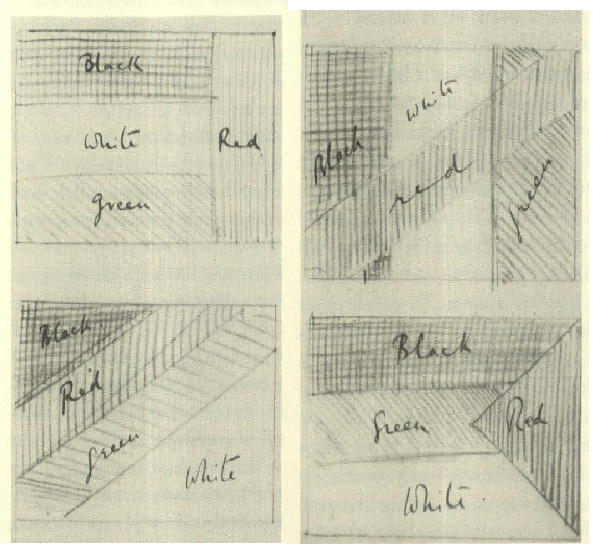 Black
White
Red
Green
White
Black
red
green
Black
Red
green
White
Black
Green
Red
White